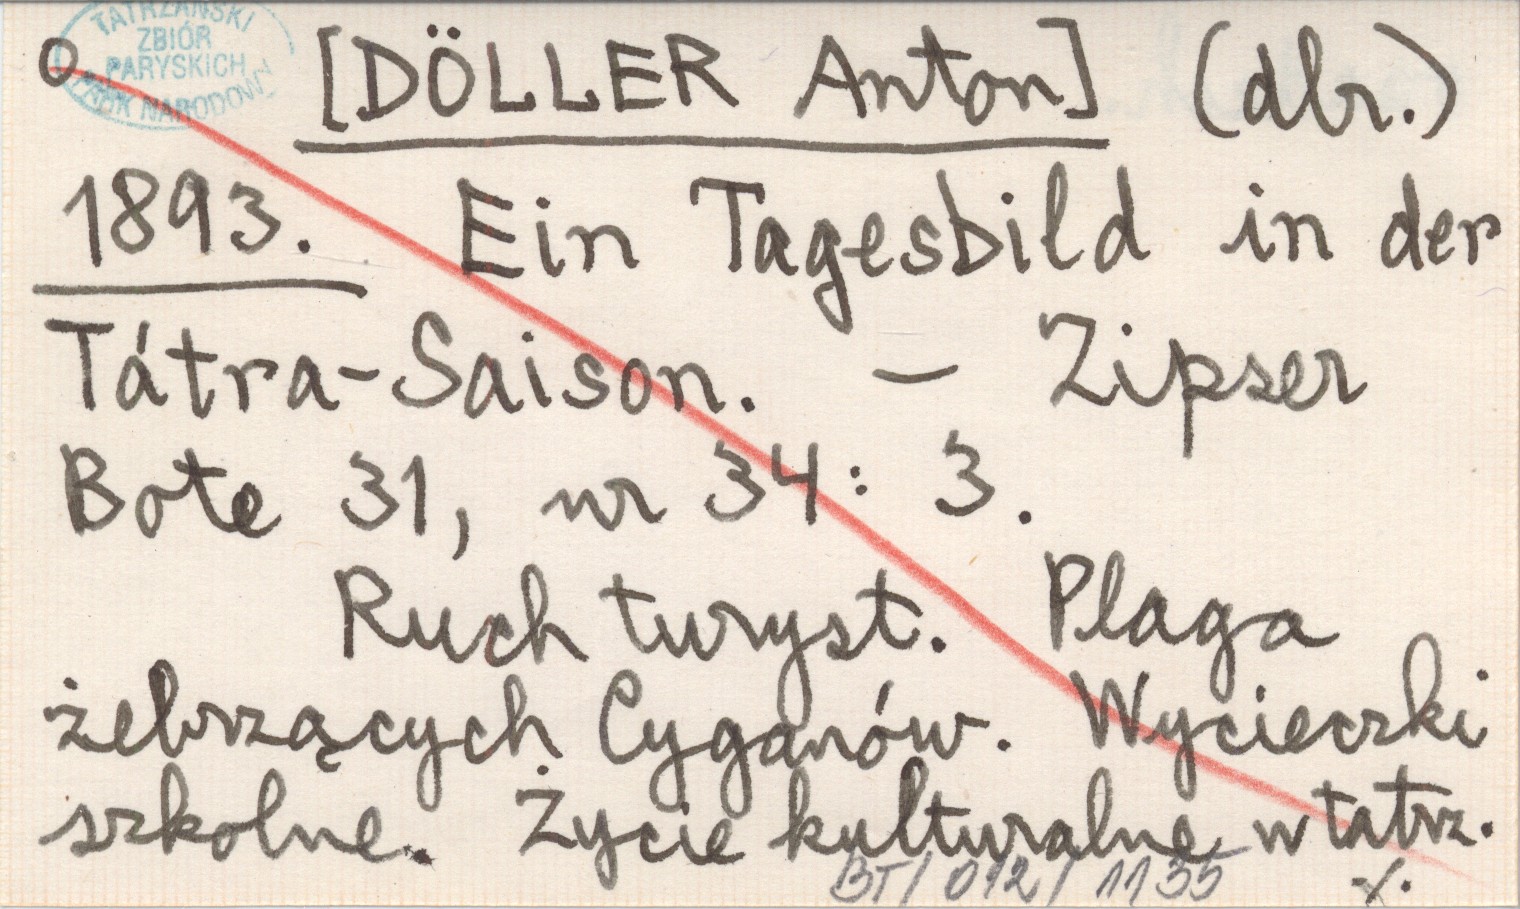 TATRZAŃSKI
ZBIÓR
PARYSKICH
PARK NARODOWY
O [DÖLLER Anton] (dbr.)
1893. Ein Tagesbild in der
Tátra-Saison. — Zipser
Bote 31, nr 34: 3.
Ruch turyst. Plaga
żebrzących Cyganów. Wycieczki
szkolne. Życie kulturalne w tatrz.
BT/012/1135 ./.